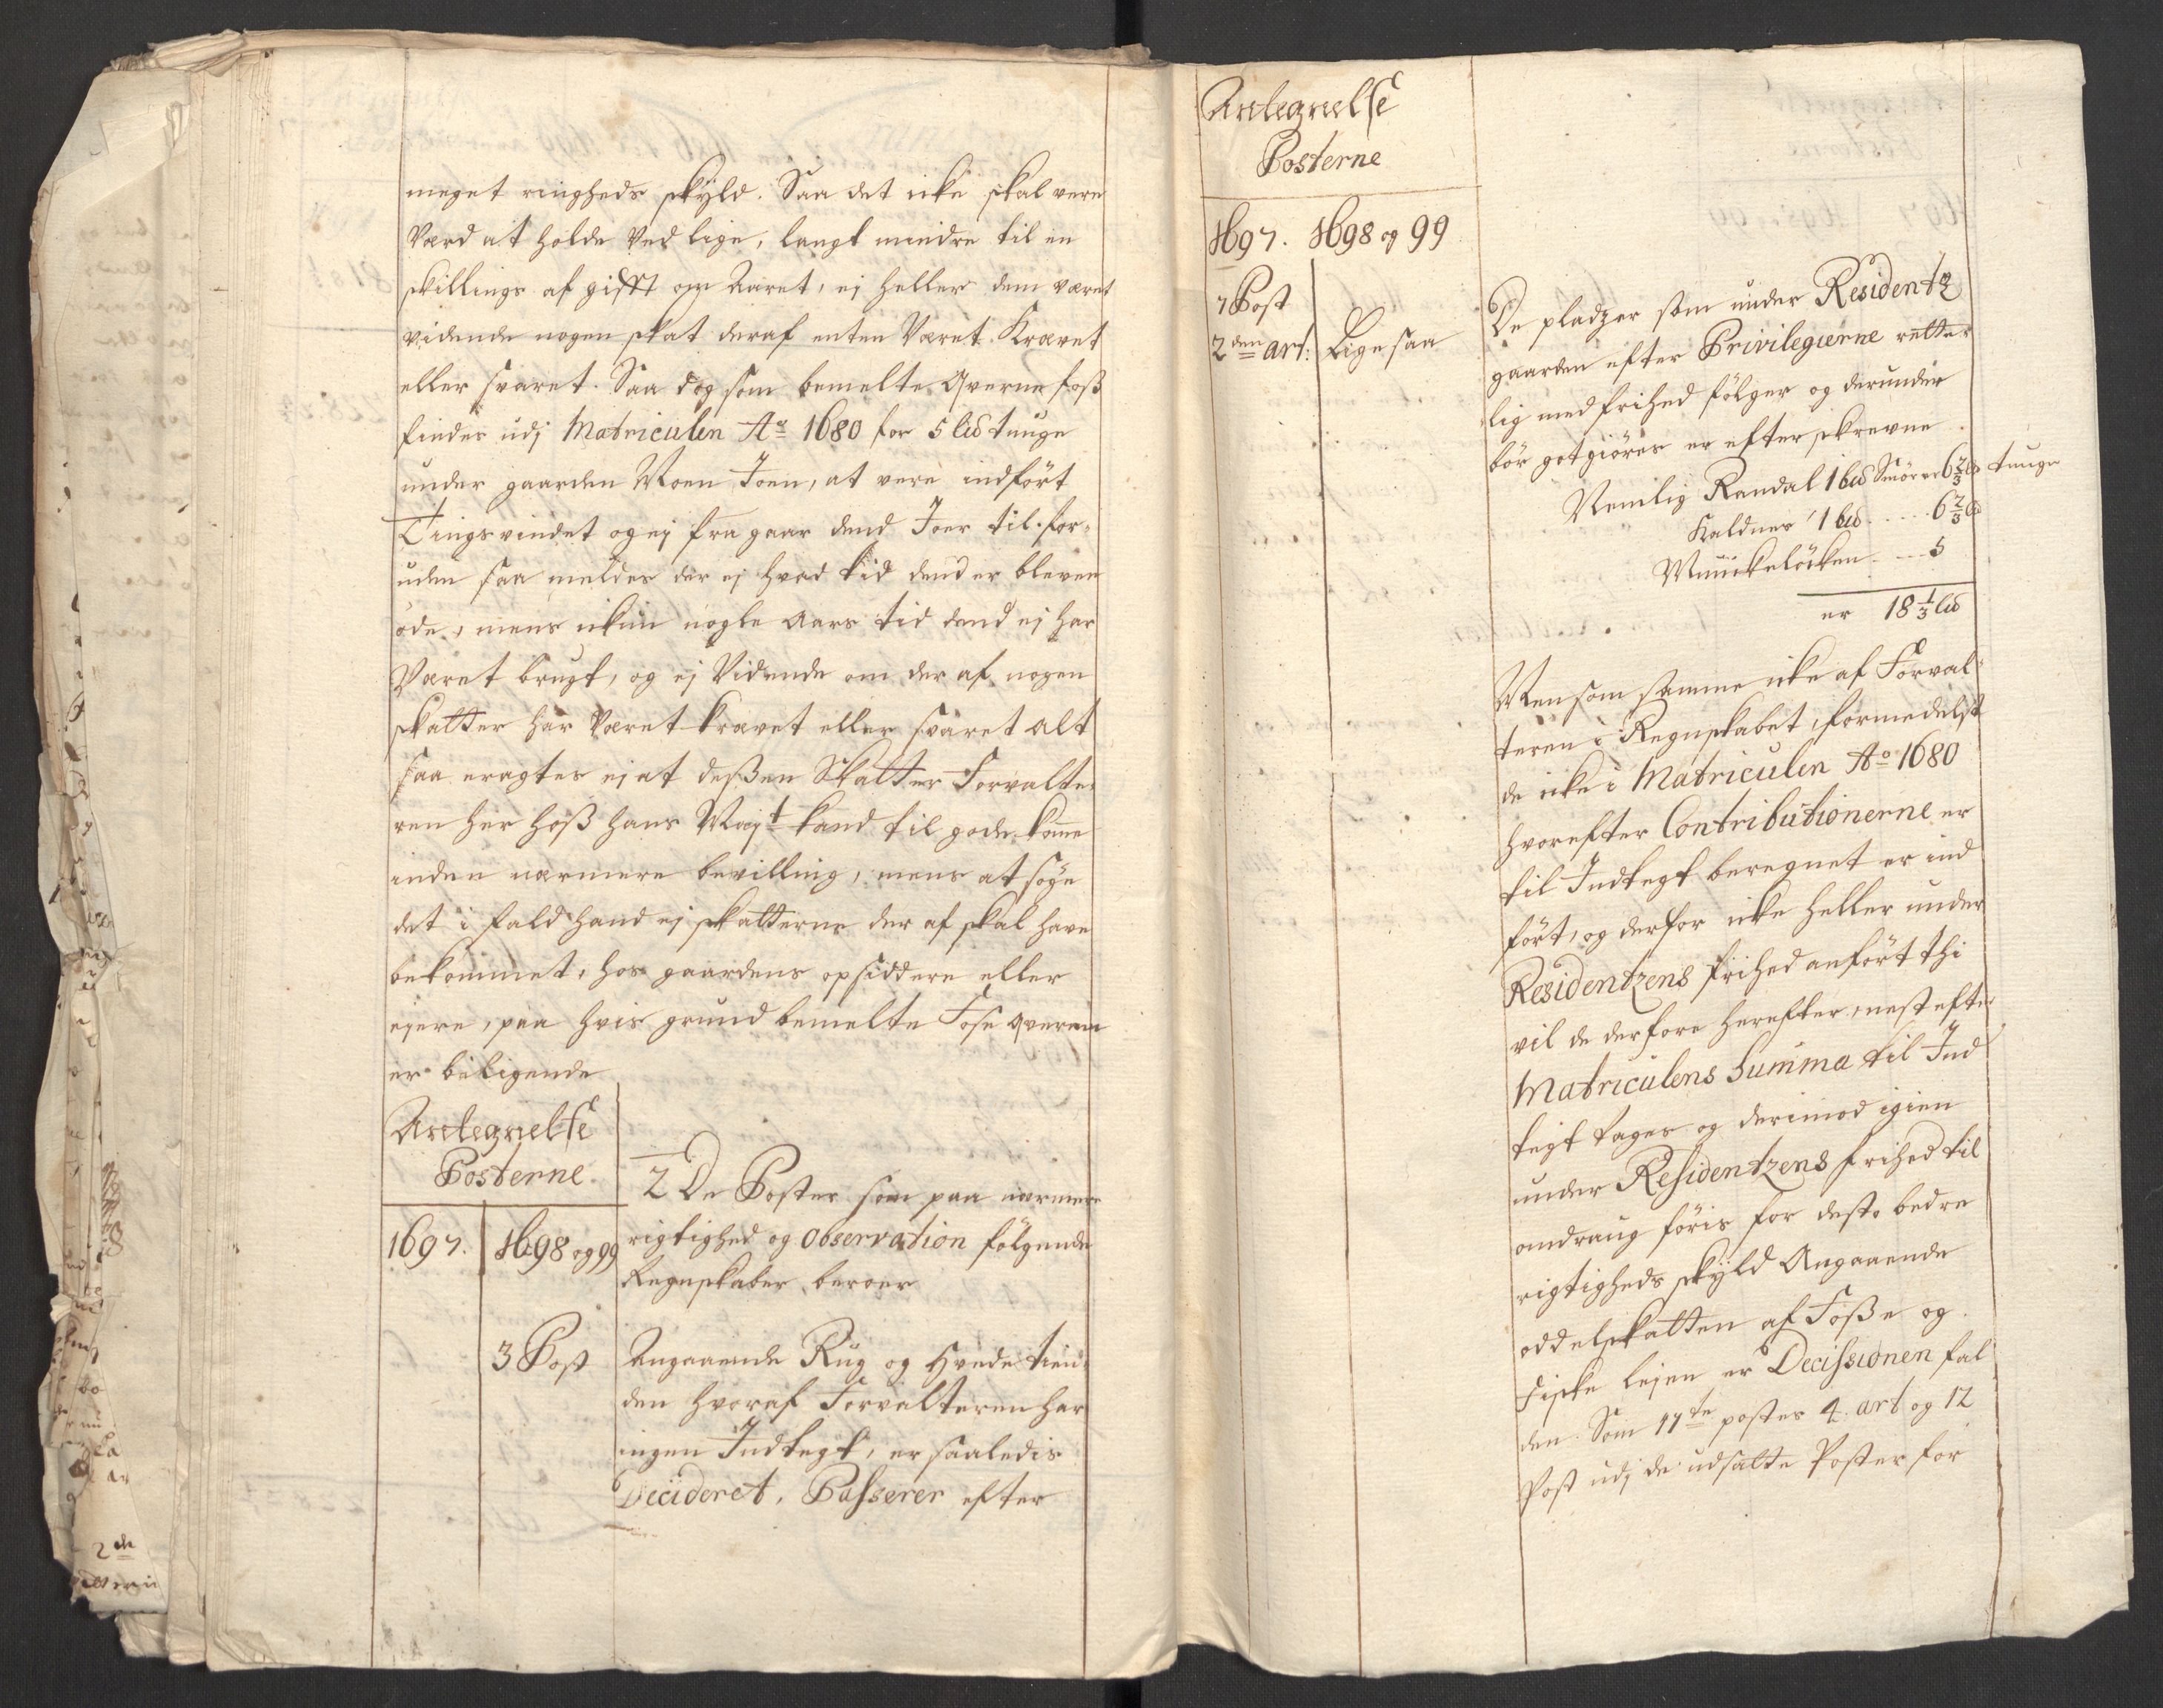 meget ringheds skyld. Saa det icke skal vere
Værd at holde ved lige, langt mindre til en
skillings afgifft om Aaret, ej heller dem været
vidende nogen skat deraf enten Været Krævet
eller svaret. Saa dog som bemelte Qverne foss
findes udj Matriculen Ao 1680 for 5 Lid tunge
under gaarden Moen Joen, at vere indført
Tingsvindet og ej fra gaar dend Joer til for-
uden saa meldes der ej hvad tid dend er bleven
øde, mens ickun nogle aars tid dend ej har
Været brugt, og ej Vidende om der af nogen
skatter har Været krævet eller svaret alt
saa eragtes ej at dessen Skatter Forvalte-
ren her hoss hans Mayt kand til gode kome
inden nærmere bevilling, mens at søge
det i fald hand ej skatterne der af skal have
bekommet, hos gaardens opsiddere eller
ejere, paa hvis grund bemelte Fose qvernen
er beligende
Antegnelse
Posterne.
1697. 1698 og 99
2 De Poster som paa nærmere
rigtighed og observation følgende
Regnskaber beroer
3 Post Angaaende Rug og Hvede tien-
den hvoraf Forvalteren har
ingen Indtegt, er saaledis
Decideret. Passerer efter
Antegnelse
Posterne
1697. 1698 og 99
7 Post
2den art: Ligesaa
De pladzer som under Residentz
gaarden efter Privilegierne rette-
lig med frihed følger og derunder
bør gotgiøres er efterskrevne
Nemlig Randal 1 bd Smør er 6 2/3 ld tunge
Kaldnes 1 bd ..... 6 2/3 ld
Munckeløcken .... 5
er 18 1/3 ld
Men som samme icke af Forval-
teren i Regnskabet, formedelst
de icke i Matriculen Ao 1680
hvorefter Contributionerne er
til Indtegt beregnet er ind
ført, og derfor icke heller under
Residentzens frihed anført thi
vil de derfore herefter, nest efter
Matriculens Summa til Ind
tegt tages og derimod igien
under Residentzens frihed til
andraug føris for deste bedre
rigtigheds skyld Angaaende
oddelskatten af Fosse og
Fiske lejen er Decissionen fal
den. Som 17te postes 4. art og 12
Post udj de udsatte Poster for